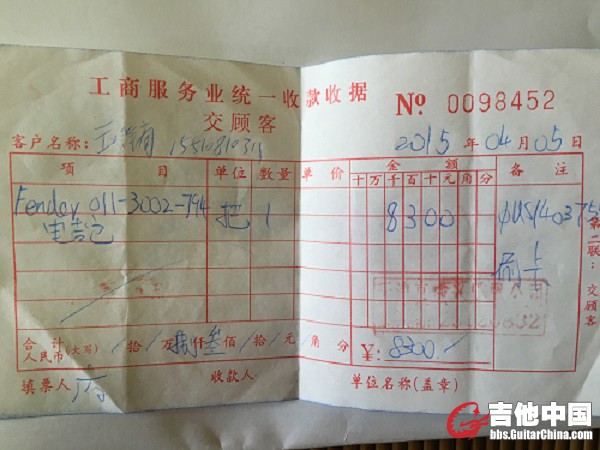 工商服务业统一收款收据
交顾客
№ 0098452
客户名称:
2015 年 04 月 05 日
项 目 单位 数量 单 价 金 额 备 注
十 万 千 百 十 元 角 分
Fender 011-3002-794 把 1 8300
电吉它
刷卡
第二联:交顾客
合 计 人民币(大写) 拾 万 捌仟 叁佰 拾 元 角 分 ¥: 8300.
填票人 收款人 单位名称(盖章)
吉他中国
bbs.GuitarChina.com